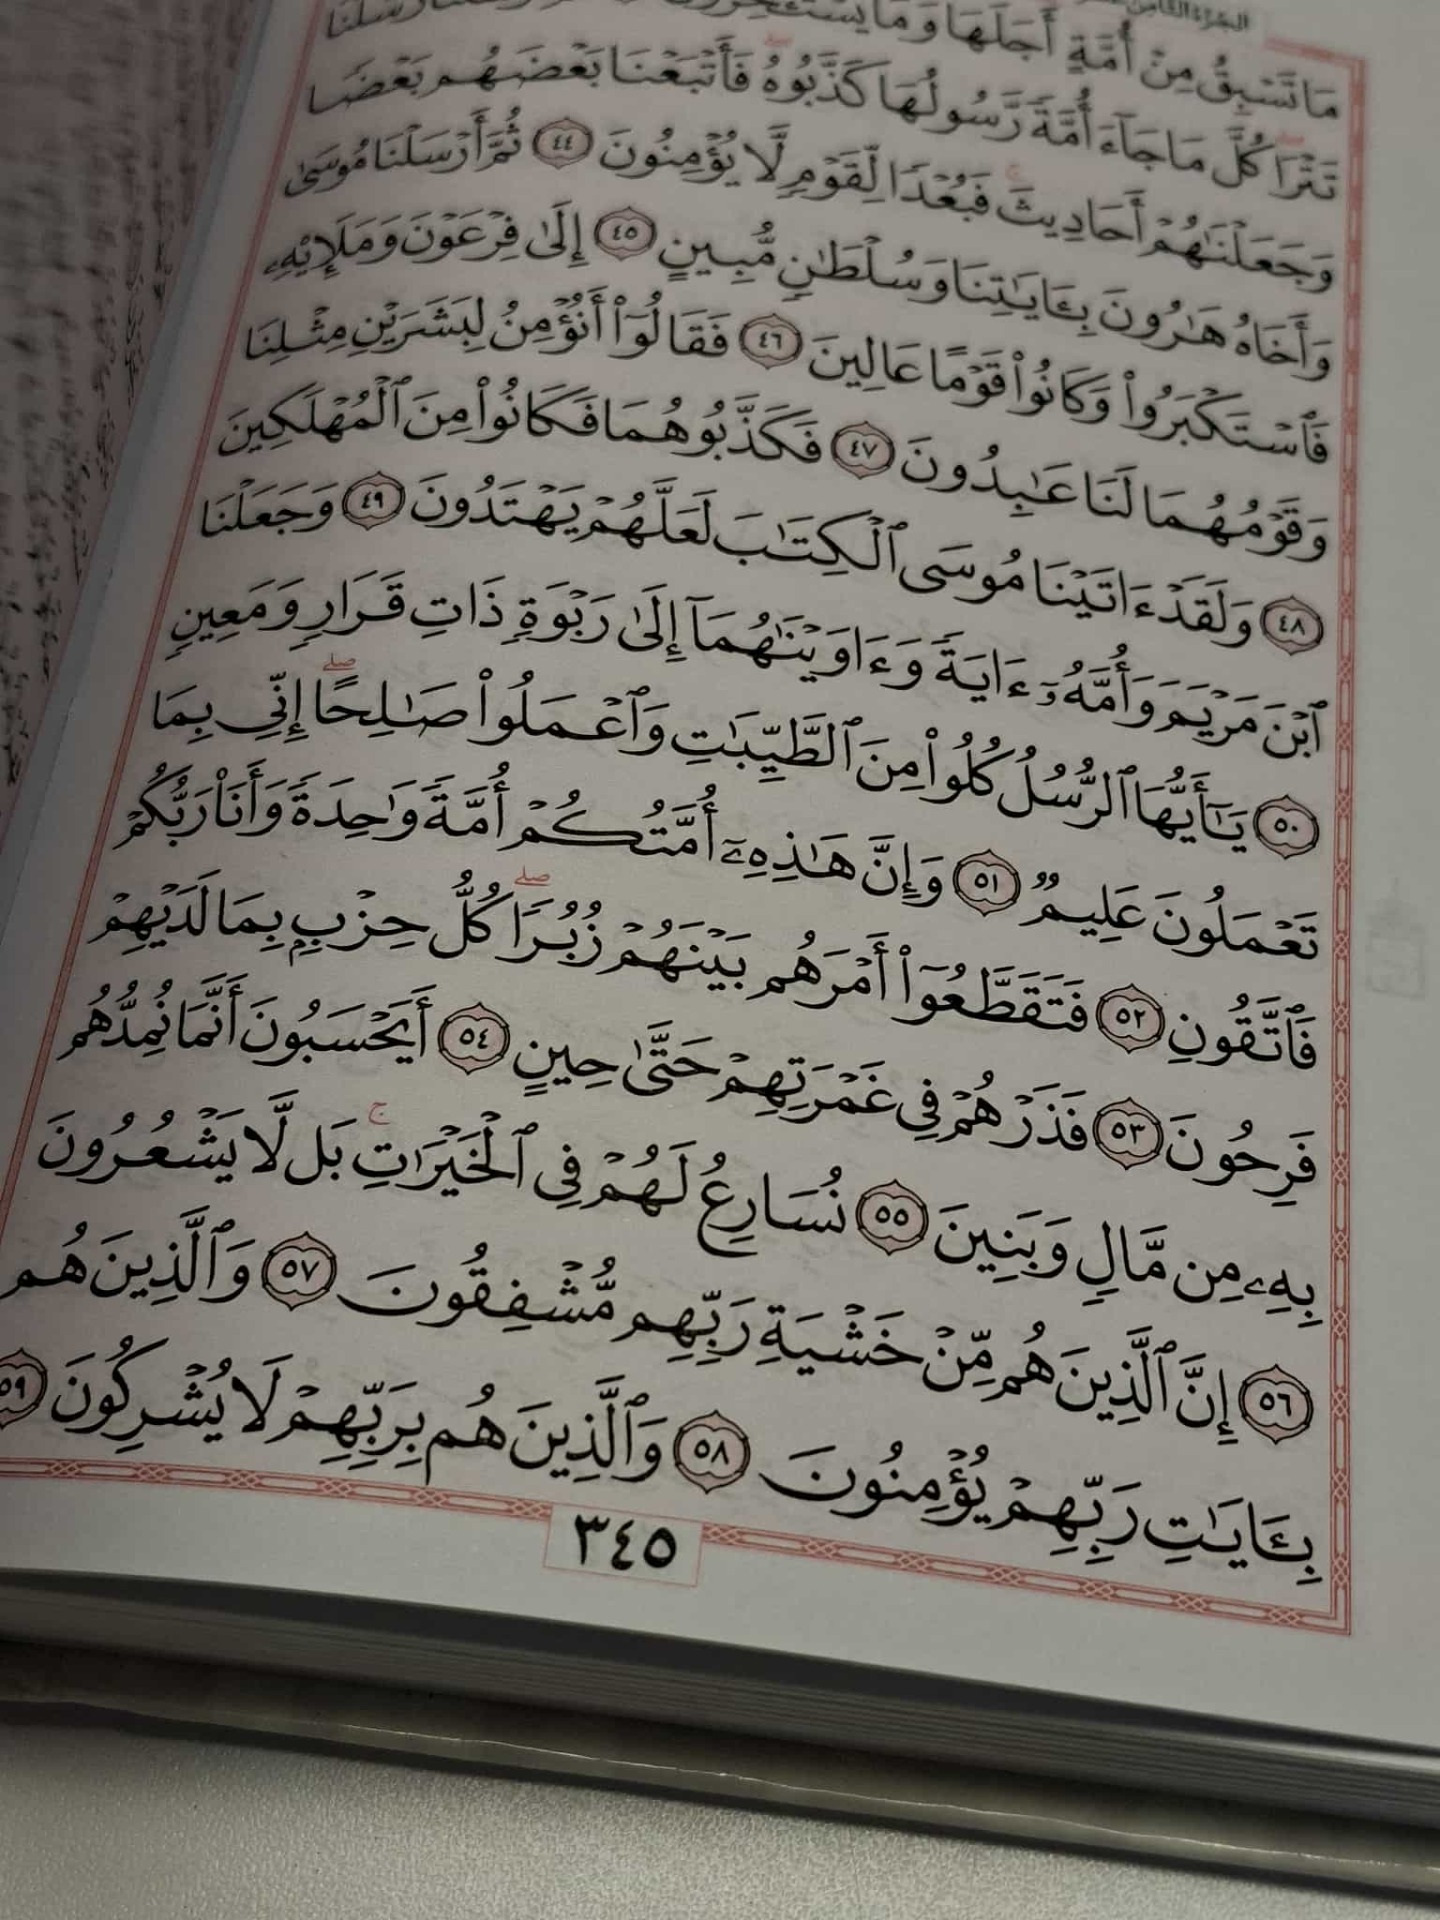 مَا تَسْبِقُ مِنْ أُمَّةٍ أَجَلَهَا وَمَا
تَتْرَا كُلَّ مَا جَآءَ أُمَّةً رَّسُولُهَا كَذَّبُوهُ فَأَتْبَعْنَا بَعْضَهُم بَعْضًا
وَجَعَلْنَٰهُمْ أَحَادِيثَ فَبُعْدًا لِّقَوْمٍ لَّا يُؤْمِنُونَ ٤٤ ثُمَّ أَرْسَلْنَا مُوسَىٰ
وَأَخَاهُ هَٰرُونَ بِـَٔايَٰتِنَا وَسُلْطَٰنٍ مُّبِينٍ ٤٥ إِلَىٰ فِرْعَوْنَ وَمَلَإِيْهِۦ
فَٱسْتَكْبَرُوا۟ وَكَانُوا۟ قَوْمًا عَالِينَ ٤٦ فَقَالُوٓا۟ أَنُؤْمِنُ لِبَشَرَيْنِ مِثْلِنَا
وَقَوْمُهُمَا لَنَا عَٰبِدُونَ ٤٧ فَكَذَّبُوهُمَا فَكَانُوا۟ مِنَ ٱلْمُهْلَكِينَ
٤٨ وَلَقَدْ ءَاتَيْنَا مُوسَى ٱلْكِتَٰبَ لَعَلَّهُمْ يَهْتَدُونَ ٤٩ وَجَعَلْنَا
ٱبْنَ مَرْيَمَ وَأُمَّهُۥٓ ءَايَةً وَءَاوَيْنَٰهُمَآ إِلَىٰ رَبْوَةٍ ذَاتِ قَرَارٍ وَمَعِينٍ
٥٠ يَٰٓأَيُّهَا ٱلرُّسُلُ كُلُوا۟ مِنَ ٱلطَّيِّبَٰتِ وَٱعْمَلُوا۟ صَٰلِحًا ۖ إِنِّى بِمَا
تَعْمَلُونَ عَلِيمٌ ٥١ وَإِنَّ هَٰذِهِۦٓ أُمَّتُكُمْ أُمَّةً وَٰحِدَةً وَأَنَا۠ رَبُّكُمْ
فَٱتَّقُونِ ٥٢ فَتَقَطَّعُوٓا۟ أَمْرَهُم بَيْنَهُمْ زُبُرًا ۖ كُلُّ حِزْبٍۭ بِمَا لَدَيْهِمْ
فَرِحُونَ ٥٣ فَذَرْهُمْ فِى غَمْرَتِهِمْ حَتَّىٰ حِينٍ ٥٤ أَيَحْسَبُونَ أَنَّمَا نُمِدُّهُم
بِهِۦ مِن مَّالٍ وَبَنِينَ ٥٥ نُسَارِعُ لَهُمْ فِى ٱلْخَيْرَٰتِ ۚ بَل لَّا يَشْعُرُونَ
٥٦ إِنَّ ٱلَّذِينَ هُم مِّنْ خَشْيَةِ رَبِّهِم مُّشْفِقُونَ ٥٧ وَٱلَّذِينَ هُم
بِـَٔايَٰتِ رَبِّهِمْ يُؤْمِنُونَ ٥٨ وَٱلَّذِينَ هُم بِرَبِّهِمْ لَا يُشْرِكُونَ ٥٩
٣٤٥